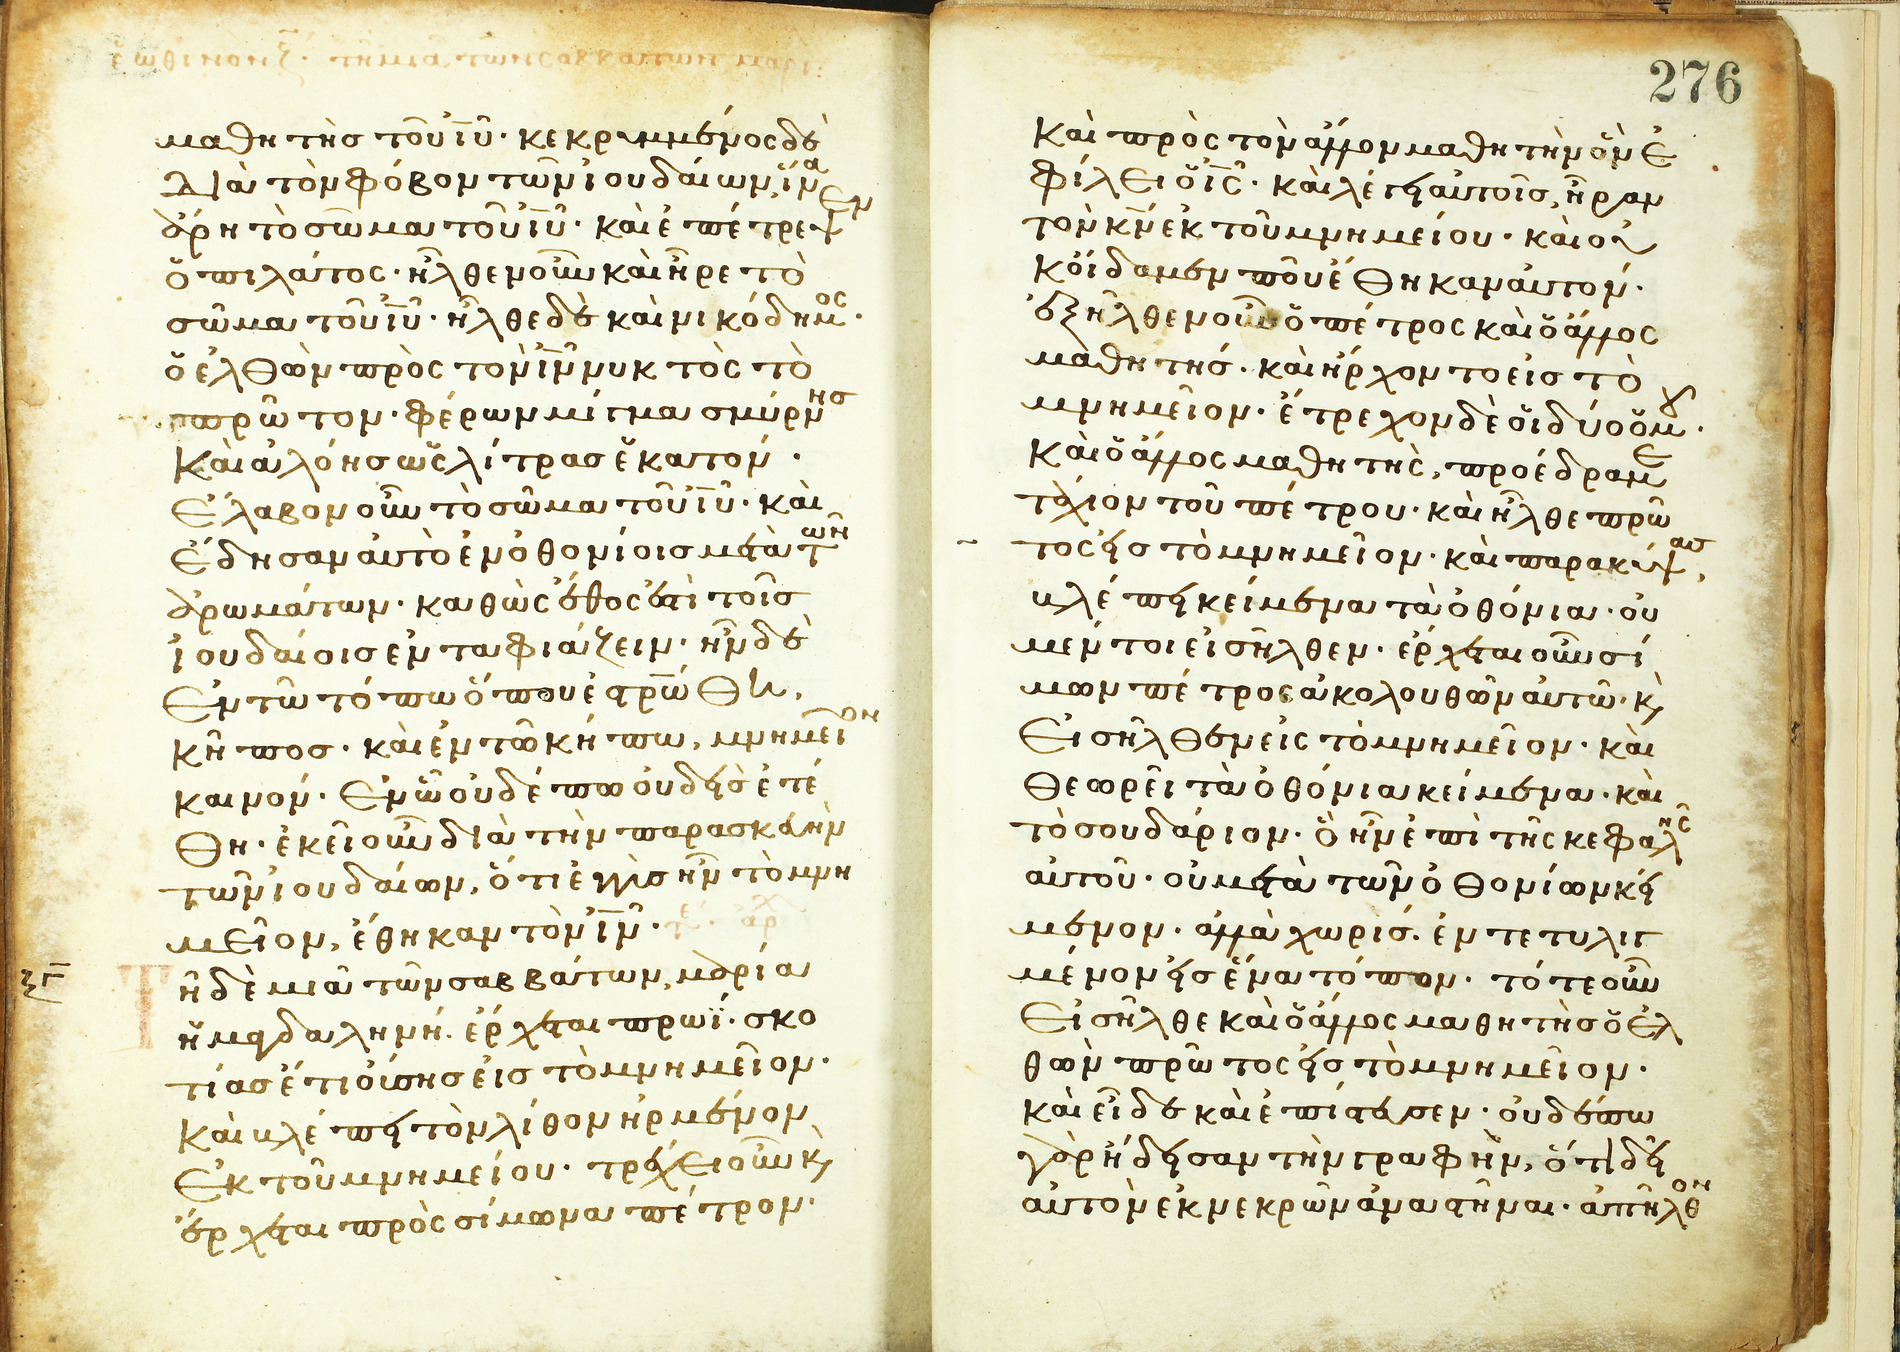 ἑωθινὸν ζ · τῆ μιᾶ τῶν σαββάτων μαρί:
μαθητὴσ τοῦ ἰῦ · κεκρυμμένος δὲ
διὰ τὸν φόβον τῶν ἰουδαίων, ἵνα
ἄρη τὸ σῶμα τοῦ ἰῦ · καὶ ἐπέτρεψεν
ὁ πιλάτος · ἦλθεν οὖν καὶ ἦρε τὸ
σῶμα τοῦ ἰῦ · ἦλθε δὲ καὶ νικόδημος ·
ὁ ἐλθὼν πρὸς τὸν ἰν νυκτὸς τὸ
πρῶτον · φέρων μίγμα σμύρνησ
καὶ ἀλόησ ὡς λίτρασ ἑκατόν ·
ἔλαβον οὖν τὸ σῶμα τοῦ ἰῦ · καὶ
ἔδησαν ἀυτὸ ἐν ὀθονίοισ μετὰ τῶν
ἀρωμάτων · καθὼς ἔθος ἐστὶ τοῖσ
ἰουδαίοισ ἐνταφιάζειν · ἦν δὲ
ἐν τῶ τόπω ὅπου ἐστρώθη,
κῆποσ · καὶ ἐν τῶ κήπω, μνημεῖον
καινόν · ἐν ὧ οὐδέπω οὐδεὶσ ἐτέ
θη · ἐκεῖ οὖν διὰ τὴν παρασκευὴν
τῶν ἰουδαίων, ὅτι ἐγγὺσ ἦν τὸ μνη
μεῖον, ἔθηκαν τὸν ἰν · τέ · ἀρχ
ξγ Τῆ δὲ μιᾶ τῶν σαββάτων, μαρία
ἡ μαγδαληνή · ἔρχεται πρωΐ · σκο
τίασ ἔτι οὔσησ εἰσ τὸ μνημεῖον ·
καὶ βλέπει τὸν λίθον ἠρμένον
ἐκ τοῦ μνημείου · τρέχει οὖν κ
ἔρχεται πρὸς σίμωνα πέτρον ·
276
καὶ πρὸς τὸν ἄλλον μαθητὴν ὃν ἐ
φίλει ὁ ἰς · καὶ λέγει αυτοῖσ, ἦραν
τὸν κν ἐκ τοῦ μνημείου · καὶ οὐ
κ οἴδαμεν ποῦ ἔθηκαν ἀυτόν ·
ἐξῆλθεν οὖν ὁ πέτρος καὶ ὁ ἄλλος
μαθητήσ · καὶ ἤρχοντο εἰσ τὸ
μνημεῖον · ἔτρεχον δὲ οἱ δύο ὁμοῦ ·
καὶ ὁ ἄλλος μαθητὴς, προέδραμε
τάχιον τοῦ πέτρου · καὶ ἦλθε πρῶ
τος εἰσ τὸ μνημεῖον · καὶ παρακύψασ,
βλέπει κείμενα τὰ ὀθόνια · οὐ
μέν τοι εἰσῆλθεν · ἔρχεται οὖν σί
μων πέτρος ἀκολουθῶν ἀυτῶ · κ
εἰσῆλθεν εἰς τὸ μνημεῖον · καὶ
θεωρεῖ τὰ ὀθόνια κείμενα · καὶ
τὸ σουδάριον · ὃ ἦν ἐπὶ τῆς κεφαλῆς
αὐτοῦ · οὐ μετὰ τῶν ὀθονίων κεί
μενον · ἀλλὰ χωρίσ · ἐντετυλιγ
μένον εἰσ ἕνα τόπον · τότε οὖν
εἰσῆλθε καὶ ὁ ἄλλος μαθητὴσ ὁ ἐλ
θὼν πρῶτος εἰσ τὸ μνημεῖον ·
καὶ εἶδε καὶ ἐπίστευσεν · οὐδέπω
γὰρ ἤδεισαν τὴν γραφὴν, ὅτι δεῖ
αὐτὸν ἐκ νεκρῶν ἀναστῆναι · ἀπῆλθον